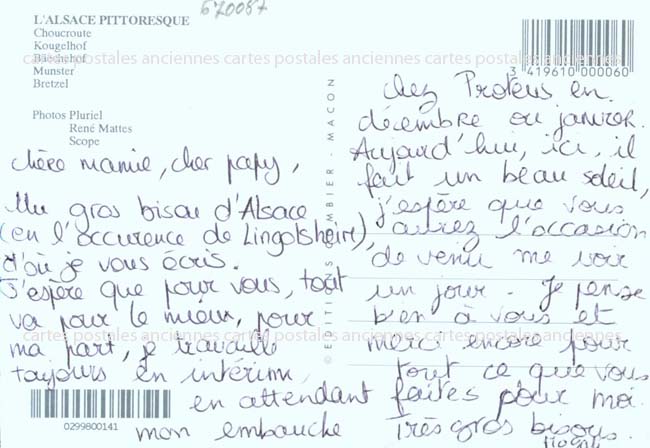 670087
L'ALSACE PITTORESQUE
Choucroute
Kougelhof
Bäckehof
Munster
Bretzel
Photos Pluriel
René Mattes
Scope
cartes postales anciennes cartes postales anciennes cartes postales anciennes
chère mamie, cher papy,
Un gros bisou d'Alsace
(en l'occurence de Lingolsheim),
d'où je vous écris.
J'espère que pour vous, tout
va pour le mieux, pour
ma part, je travaille
toujours en intérim,
en attendant
mon embauche
0299800141
© EDITIONS COMBIER - MACON
3 419610 000060
chez Proteus en
décembre ou janvier.
Aujourd'hui, ici, il
fait un beau soleil,
j'espère que vous
aurez l'occasion
de venir me voir
un jour. Je pense
bien à vous et
merci encore pour
tout ce que vous
faites pour moi.
Très gros bisous.
cartes postales anciennes cartes postales anciennes cartes postales anciennes